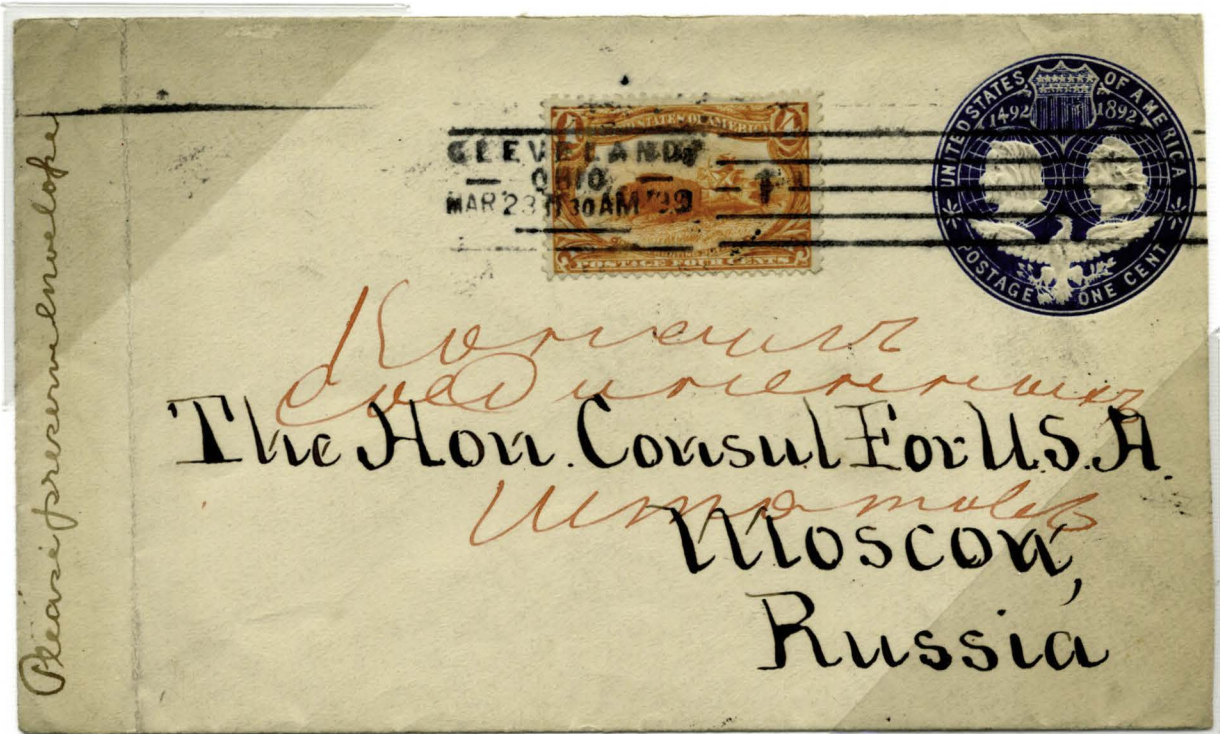 Please preserve envelope
CLEVELAND,
OHIO,
MAR 23 11 30 AM '99
4 4
UNITED STATES OF AMERICA
POSTAGE FOUR CENTS
UNITED STATES OF AMERICA
1492 1892
POSTAGE ONE CENT
Консулъ
Соединенныхъ
The Hon. Consul For U.S.A.
Штатовъ
Moscow,
Russia